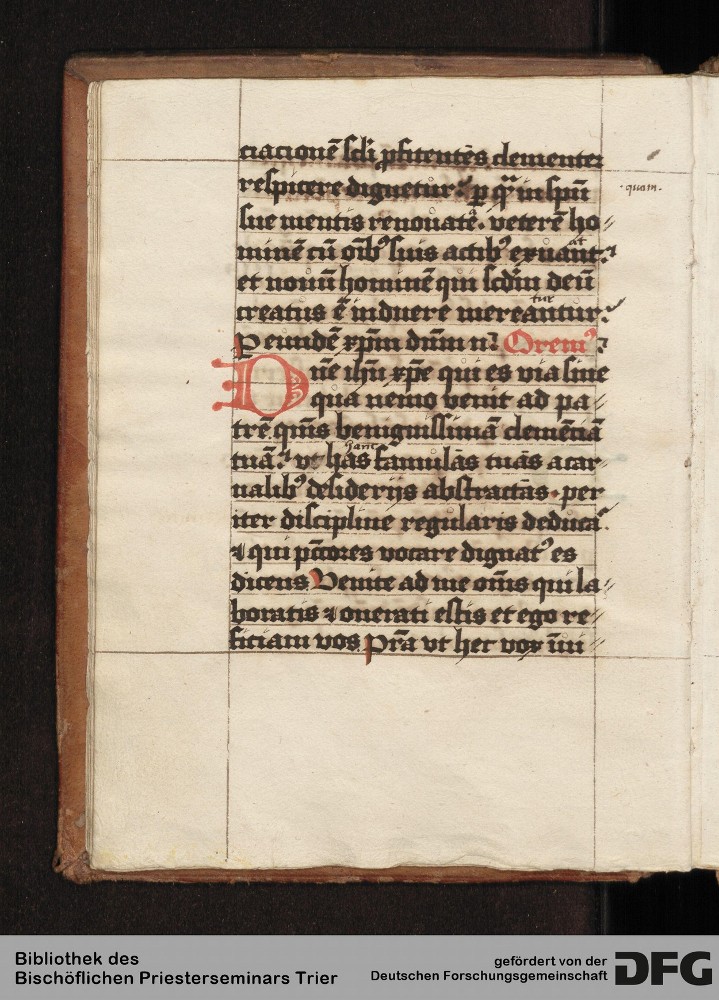 ciacionē scl̄i ꝓfitentēs clementer
respicere dignetur. ꝑ qͣ in spū
·quam·
sue mentis renouatē. veterē ho⸗
minē cū oīb⁹ suis actib⁹ exuānt.
at
et nouū hominē qui scdm̄ deū
creatus ē induere mereantur.
tur
Ꝑ eundē xp̄m dn̄m n̄. Orem⁹.
Dn̄e ih̄u xp̄e qui es via sine
qua nemo venit ad pa⸗
trē. qm̄s benignissimā clemēciā
tuā. vt has famulās tuās a car
hanc
nalib⁹ desiderijs abstractās. per
iter discipline regularis deducas.
⁊ qui pctōres vocare dignat⁹ es
dicens Venite ad me om̄s qui la⸗
boratis ⁊ onerati estis et ego re⸗
ficiam vos Pr̄a vt hec vox
Bibliothek des
Bischöflichen Priesterseminars Trier
gefördert von der
Deutschen Forschungsgemeinschaft
DFG